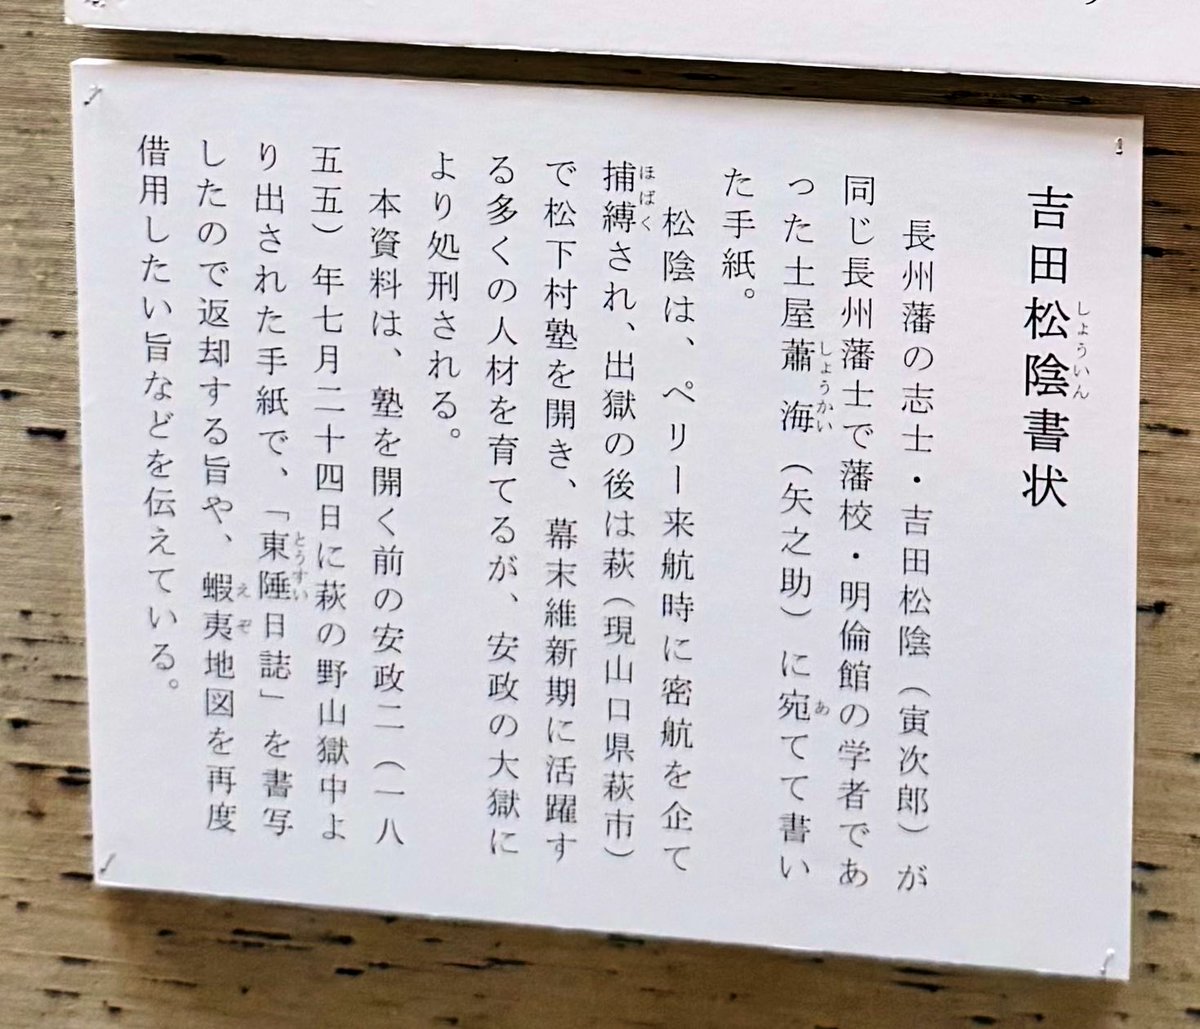 吉田松陰書状
長州藩の志士・吉田松陰（寅次郎）が
同じ長州藩士で藩校・明倫館の学者であ
った土屋蕭海（矢之助）に宛てて書い
た手紙。
松陰は、ペリー来航時に密航を企て
捕縛され、出獄の後は萩（現山口県萩市）
で松下村塾を開き、幕末維新期に活躍す
る多くの人材を育てるが、安政の大獄に
より処刑される。
本資料は、塾を開く前の安政二（一八
五五）年七月二十四日に萩の野山獄中よ
り出された手紙で、「東陲日誌」を書写
したので返却する旨や、蝦夷地図を再度
借用したい旨などを伝えている。
しょういん
しょうかい
あ
ほばく
とうすい
えぞ